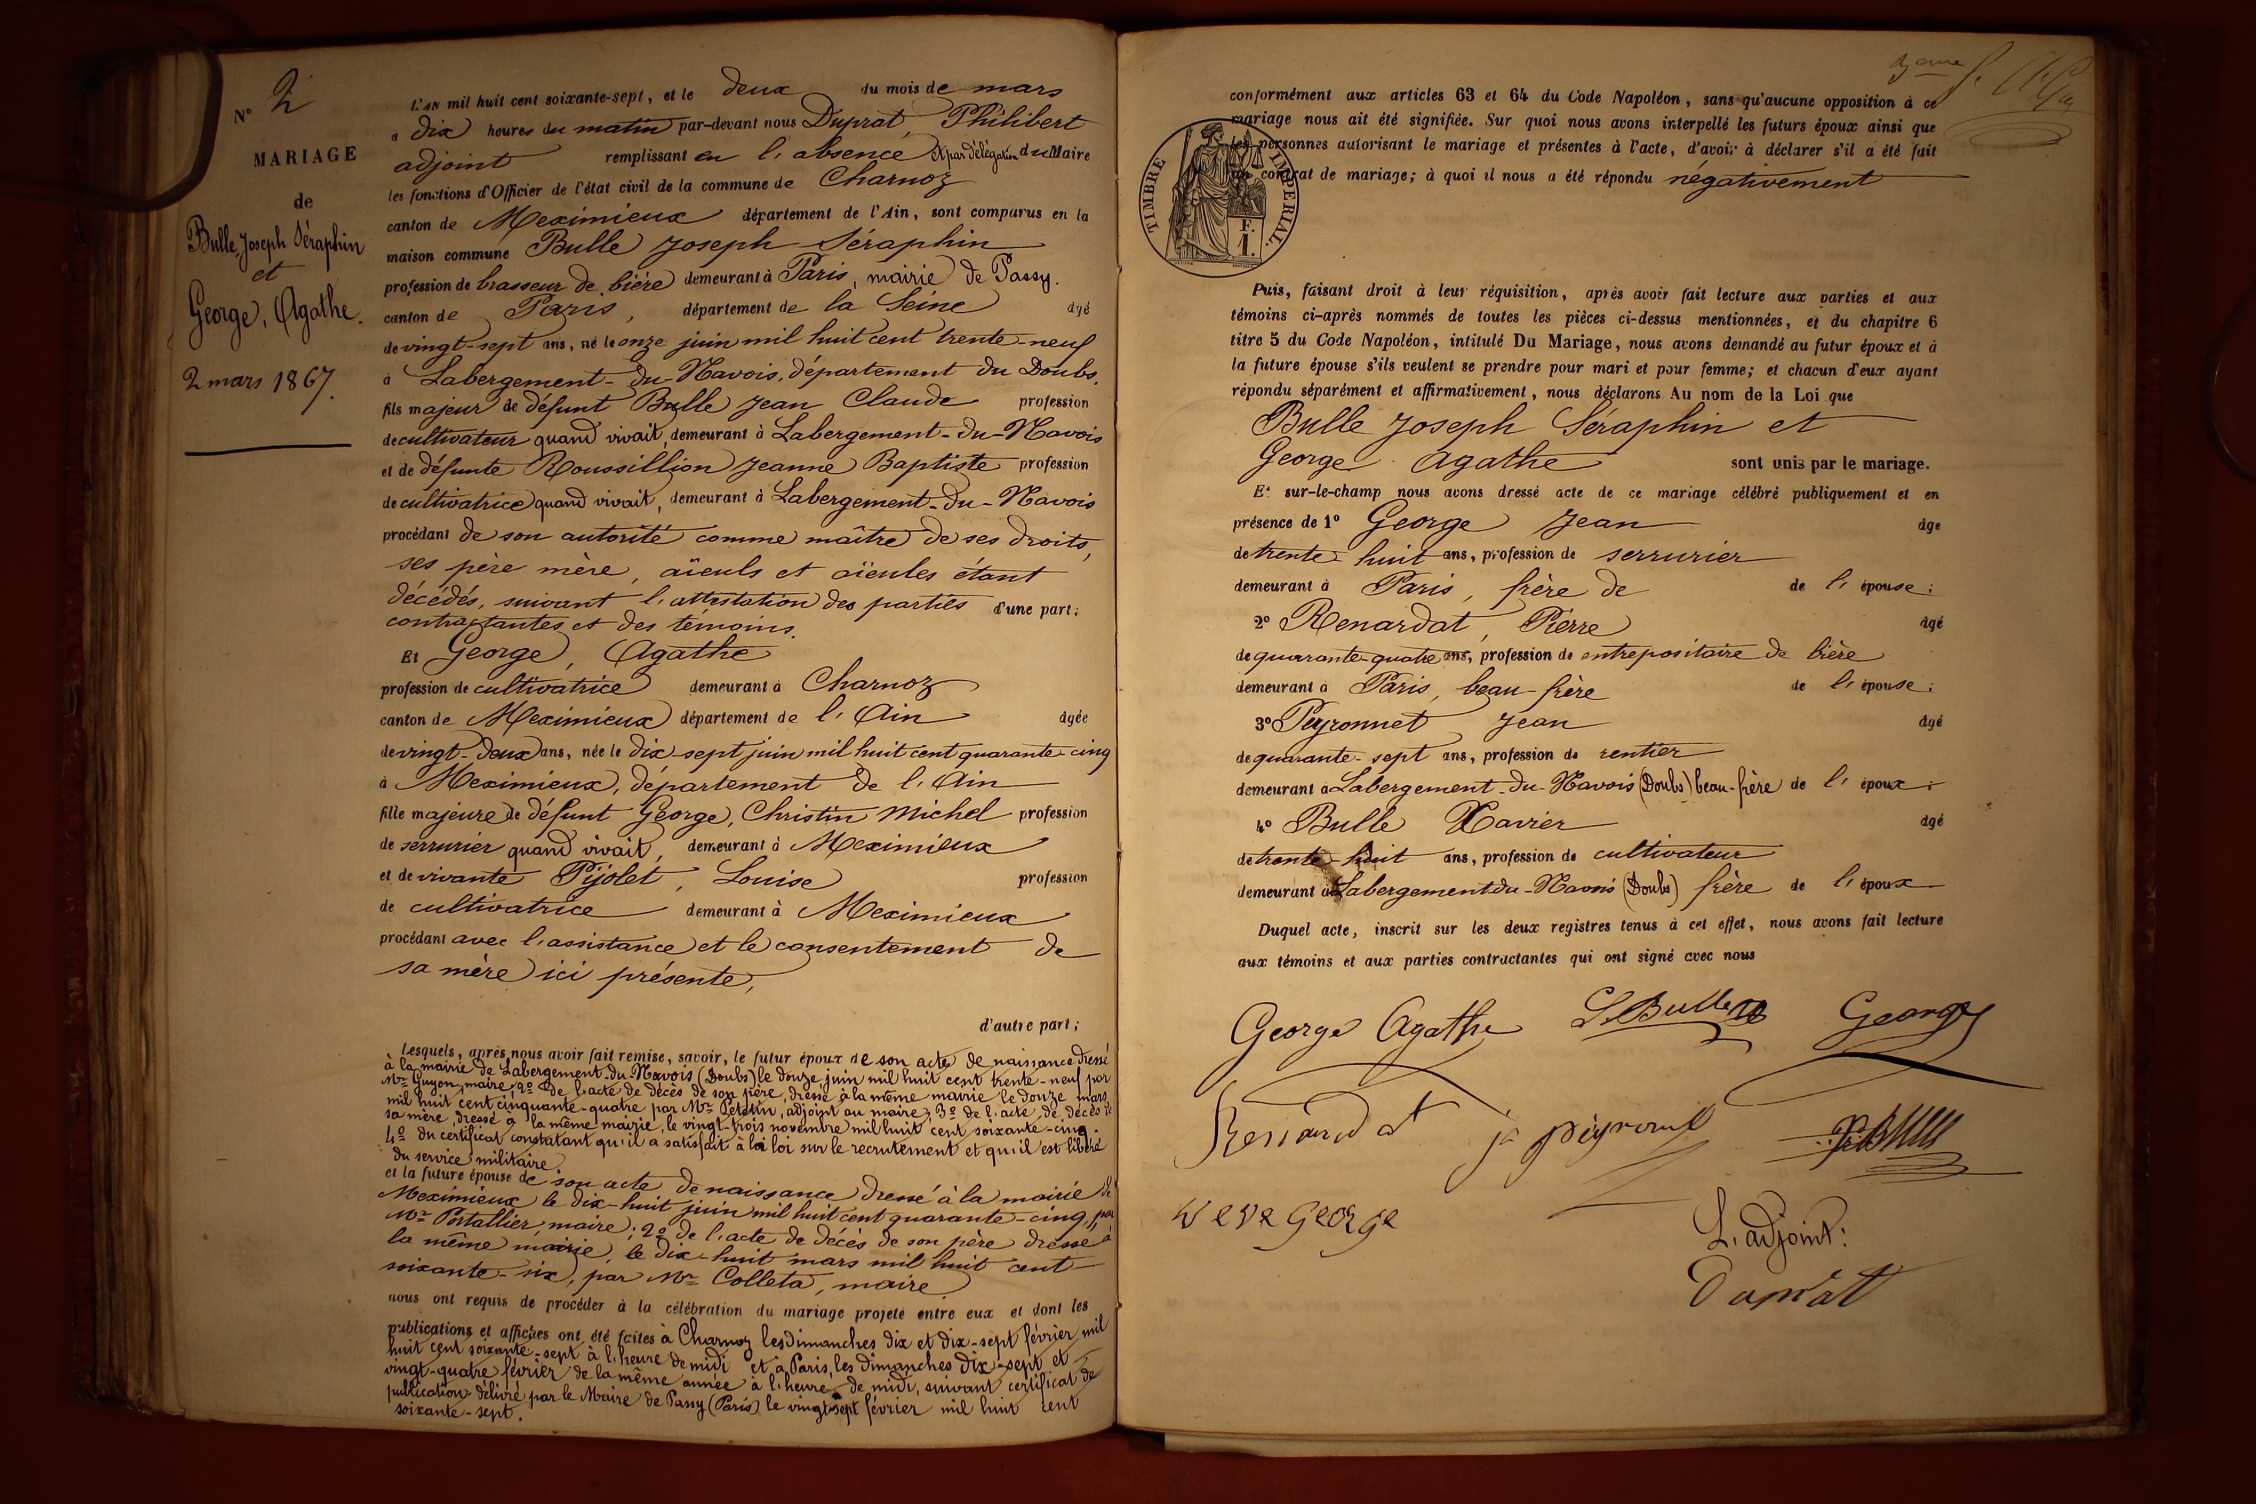 N° 2
MARIAGE
de
Bulle, Joseph Séraphin
et
George, Agathe.
2 mars 1867.
L'AN mil huit cent soixante-sept, et le deux du mois de mars
à dix heures du matin par-devant nous Duprat, Philibert
adjoint remplissant en l'absence et par délégation du Maire
les fonctions d'Officier de l'état civil de la commune de Charnoz
canton de Meximieux département de l'Ain, sont comparus en la
maison commune Bulle Joseph Séraphin
profession de brasseur de bière demeurant à Paris, mairie de Passy.
canton de Paris, département de la Seine âgé
de vingt-sept ans, né le onze juin mil huit cent trente-neuf
à Labergement-du-Navois, département du Doubs,
fils majeur de défunt Bulle Jean Claude profession
de cultivateur quand vivait, demeurant à Labergement-du-Navois
et de défunte Roussillion Jeanne Baptiste profession
de cultivatrice quand vivait, demeurant à Labergement-du-Navois
procédant de son autorité comme maître de ses droits,
ses père mère, aïeuls et aïeules étant
décédés, suivant l'attestation des parties d'une part;
contractantes et des témoins.
Et George, Agathe
profession de cultivatrice demeurant à Charnoz
canton de Meximieux département de l'Ain âgée
de vingt-deux ans, née le dix-sept juin mil huit cent quarante-cinq
à Meximieux, département de l'Ain
fille majeure de défunt George, Christin Michel profession
de serrurier quand vivait, demeurant à Meximieux
et de vivante Pijolet, Louise profession
de cultivatrice demeurant à Meximieux
procédant avec l'assistance et le consentement de
sa mère ici présente,
d'autre part;
Lesquels, après nous avoir fait remise, savoir, le futur époux de son acte de naissance dressé
à la mairie de Labergement-du-Navois (Doubs) le douze juin mil huit cent trente-neuf par
Mr Guyon, maire; 2° de l'acte de décès de son père, dressé à la même mairie le douze mars
mil huit cent cinquante-quatre par Mr Petetin, adjoint au maire; 3° de l'acte de décès de
sa mère, dressé à la même mairie, le vingt-trois novembre mil huit cent soixante-cinq.
4° du certificat constatant qu'il a satisfait à la loi sur le recrutement et qu'il est libéré
du service militaire.
et la future épouse de son acte de naissance dressé à la mairie de
Meximieux le dix-huit juin mil huit cent quarante-cinq, par
Mr Portallier, maire; 2° de l'acte de décès de son père dressé à
la même mairie, le dix-huit mars mil huit cent
soixante-six, par Mr Colleta, maire
nous ont requis de procéder à la célébration du mariage projeté entre eux et dont les
publications et affiches ont été faites à Charnoz les dimanches dix et dix-sept février mil
huit cent soixante-sept à l'heure de midi et à Paris, les dimanches dix-sept et
vingt-quatre février de la même année à l'heure de midi, suivant certificat de
publication délivré par le Maire de Passy (Paris) le vingt-sept février mil huit cent
soixante-sept.
conformément aux articles 63 et 64 du Code Napoléon, sans qu'aucune opposition à ce
mariage nous ait été signifiée. Sur quoi nous avons interpellé les futurs époux ainsi que
les personnes autorisant le mariage et présentes à l'acte, d'avoir à déclarer s'il a été fait
un contrat de mariage; à quoi il nous a été répondu négativement
TIMBRE IMPERIAL.
F.
1.
Puis, faisant droit à leur réquisition, après avoir fait lecture aux parties et aux
témoins ci-après nommés de toutes les pièces ci-dessus mentionnées, et du chapitre 6
titre 5 du Code Napoléon, intitulé Du Mariage, nous avons demandé au futur époux et à
la future épouse s'ils veulent se prendre pour mari et pour femme; et chacun d'eux ayant
répondu séparément et affirmativement, nous déclarons Au nom de la Loi que
Bulle Joseph Séraphin et
George Agathe sont unis par le mariage.
Et sur-le-champ nous avons dressé acte de ce mariage célébré publiquement et en
présence de 1° George Jean âge
de trente-huit ans, profession de serrurier
demeurant à Paris, frère de de l'épouse;
2° Renardat, Pierre âgé
de quarante-quatre ans, profession de entrepositaire de bière
demeurant à Paris, beau-frère de l'épouse;
3° Peyronnet Jean âgé
de quarante-sept ans, profession de rentier
demeurant à Labergement-du-Navois (Doubs) beau-frère de l'époux;
4° Bulle Xavier âgé
de trente-huit ans, profession de cultivateur
demeurant à Labergement du-Navois (Doubs) frère de l'époux
Duquel acte, inscrit sur les deux registres tenus à cet effet, nous avons fait lecture
aux témoins et aux parties contractantes qui ont signé avec nous
George Agathe S. Bulle George
Renardat
veve George
L'adjoint:
Duprat